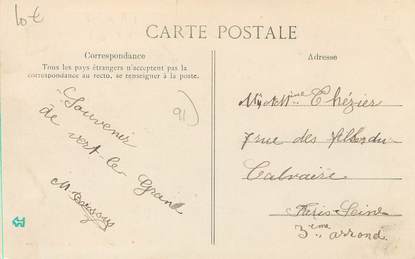 10 €
CARTE POSTALE
Correspondance
Tous les pays étrangers n'acceptent pas la
correspondance au recto, se renseigner à la poste.
Adresse
91
Souvenir
de vert-le Grand
M.
Mme Thézier
7 rue des filles du
Calvaire
Paris-Seine
3eme arrond